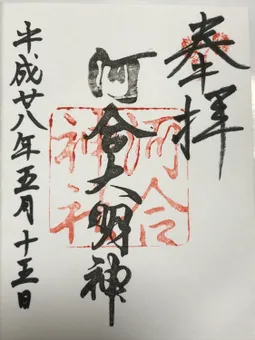 奉拝
河合大明神
河合神社
平成廿八年五月十三日